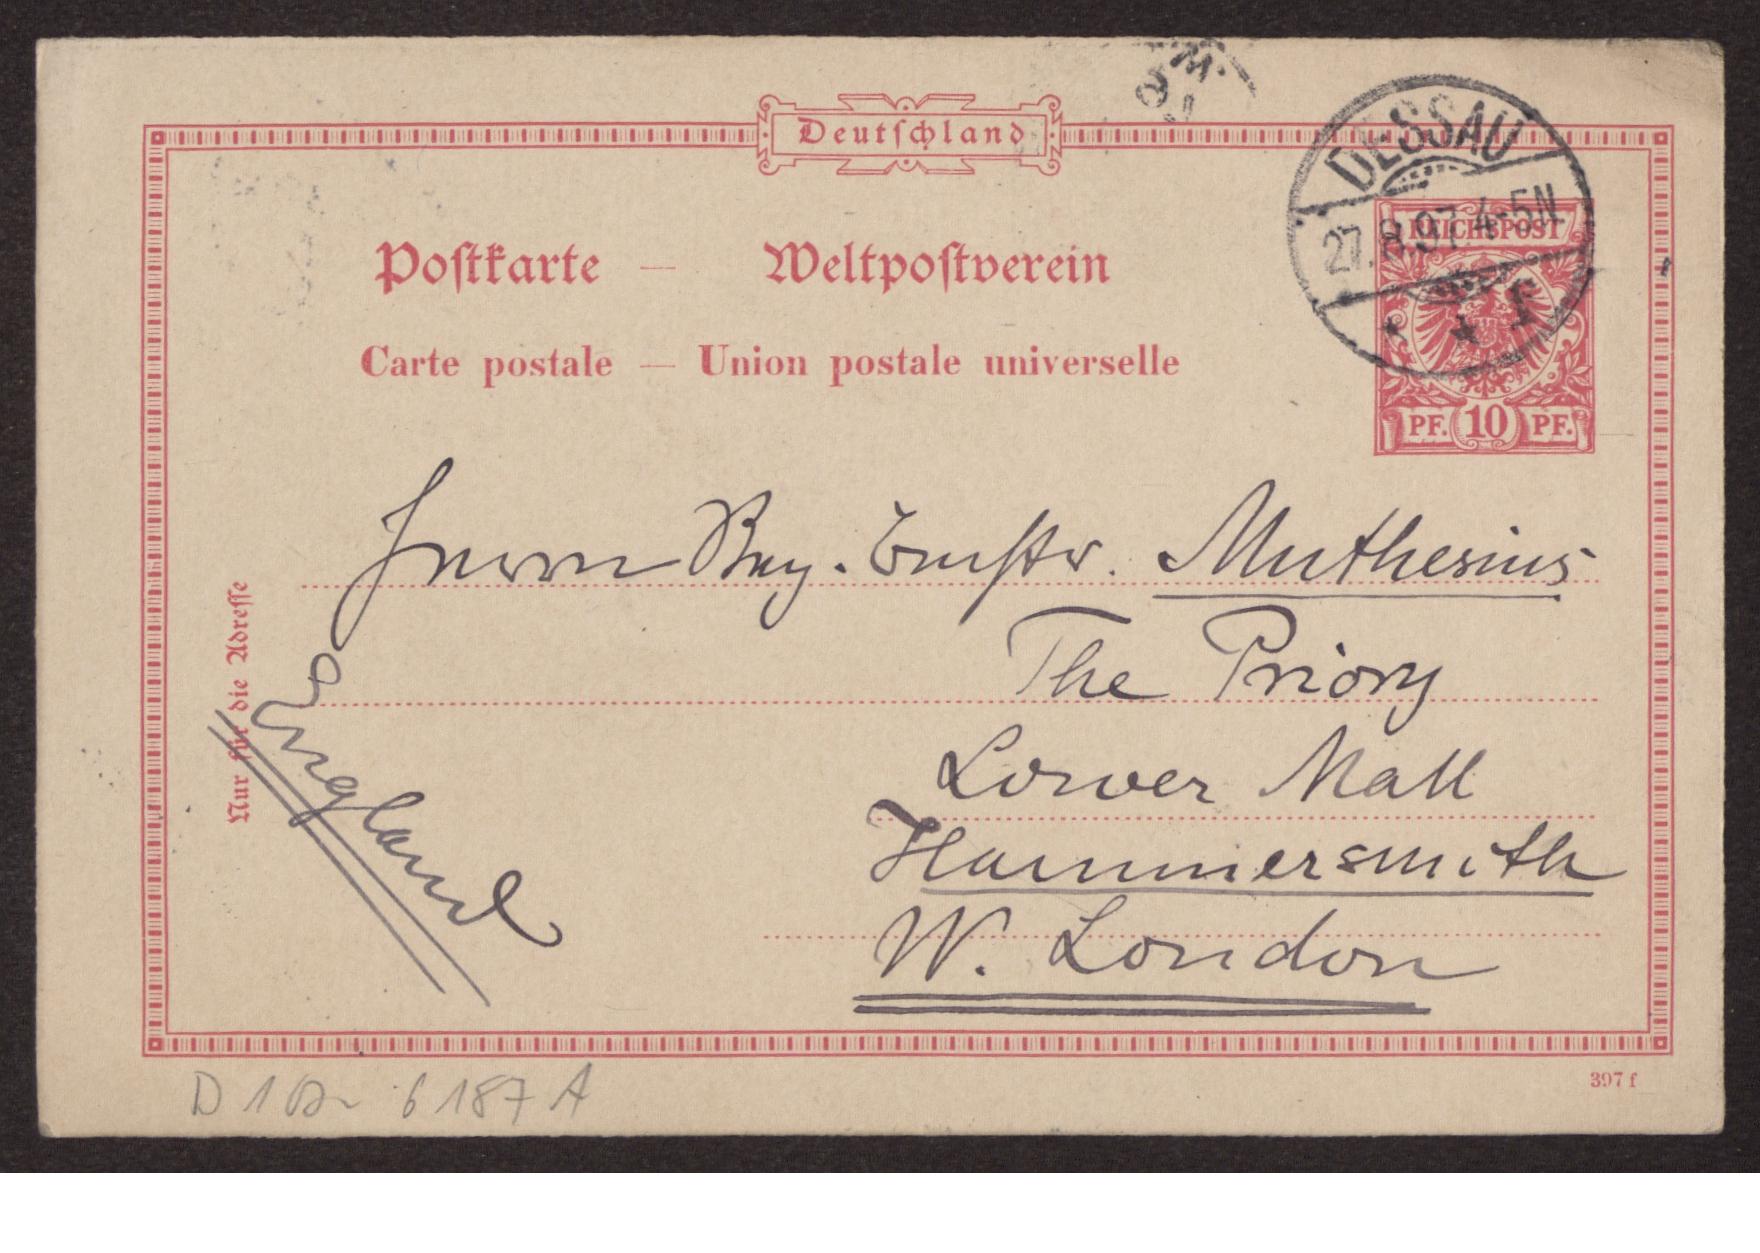 Deutſchland
DESSAU
27.8.97.4-5N
* * f
REICHSPOST
PF. 10 PF.
Poſtkarte — Weltpoſtverein
Carte postale — Union postale universelle
Herrn Reg. Bmſtr. Muthesius
The Priory
Lower Mall
Hammersmith
W. London
England
Nur für die Adreſſe
397 f
D 1 6187 A